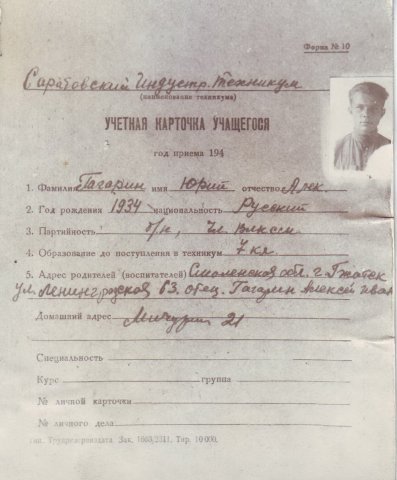 Форма № 10
Саратовский Индустр. техникум
(наименование техникума)
УЧЕТНАЯ КАРТОЧКА УЧАЩЕГОСЯ
год приема 194
1. Фамилия Гагарин имя Юрий отчество Алек.
2. Год рождения 1934 национальность Русский
3. Партийность б/п, чл. ВЛКСМ
4. Образование до поступления в техникум 7 кл.
5. Адрес родителей (воспитателей) Смоленская обл. г. Гжатск
ул. Ленинградская 63. отец. Гагарин Алексей Иван
Домашний адрес Мичурин 21
Специальность
Курс группа
№ личной карточки
№ личного дела
Тип. Трудрезервиздата Зак. 1663/2311, Тир. 10 000.